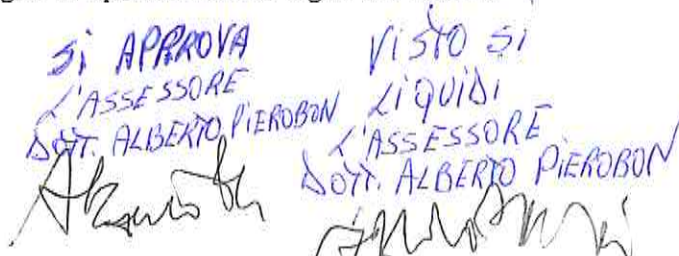 Si APPROVA
L'ASSESSORE
DOTT. ALBERTO PIEROBON
VISTO SI
LIQUIDI
L'ASSESSORE
DOTT. ALBERTO PIEROBON